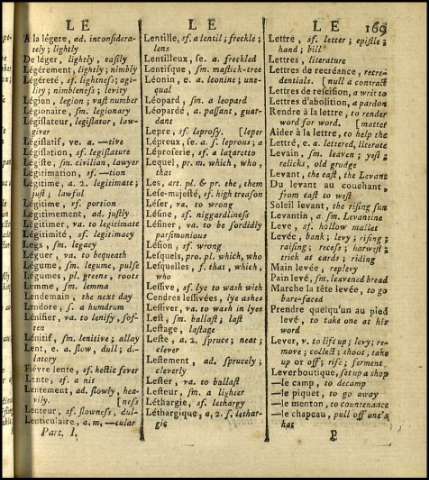 L E
L E
L E
169
A la légere, ad. inconsidera-
tely; lightly
De léger, lightly, easily
Légérement, lightly; nimbly
Légéreté, sf. lightness; agi-
lity; nimbleness; levity
Légion, legion; vast number
Légionaire, sm. legionary
Législateur, legislator, law-
giver
Législatif, ve. a. —tive
Législation, sf. legislature
Légiste, sm. civilian, lawyer
Légitimation, sf. —tion
Légitime, a. 2. legitimate;
just; lawful
Légitime, sf. portion
Légitimement, ad. justly
Légitimer, va. to legitimate
Légitimité, sf. legitimacy
Legs, sm. legacy
Léguer, va. to bequeath
Légume, sm. legume, pulse
Légumes, pl. greens, roots
Lemme, sm. lemma
Lendemain, the next day
Lendore, s. a humdrum
Lénifier, va. to lenify, sof-
ten
Lénitif, sm. lenitive; allay
Lent, e. a. slow, dull; di-
latory
Fiévre lente, sf. hectic fever
Lente, sf. a nit
Lentement, ad. slowly, hea-
vily. [ness
Lenteur, sf. slowness, dul-
Lenticulaire, a. m, —cular
Part. I.
Lentille, sf. a lentil; freckle;
lens
Lentilleux, se. a. freckled
Lentisque, sm. mastick-tree
Léonin, e. a. leonine; une-
qual
Léopard, sm. a leopard
Léopardé, a. passant, guar-
dant
Lepre, sf. leprosy. [leper
Lépreux, se. a. s. leprous; a
Léproserie, sf. a lazaretto
Lequel, pr. m. which, who,
that
Les, art. pl. & pr. the, them
Lése-majesté, sf. high treason
Léser, va. to wrong
Lésine, sf. niggardliness
Lésiner, va. to be sordidly
parsimonious
Lésion, sf. wrong
Lesquels, pro. pl. which, who
Lesquelles, f. that, which,
who
Lessive, sf. lye to wash with
Cendres lessivées, lye ashes
Lessiver, va. to wash in lyes
Lest, sm. ballast; last
Lestage, lastage
Leste, a. 2. spruce; neat;
clever
Lestement, ad. sprucely;
cleverly
Lester, va. to ballast
Lesteur, sm. a ligher
Léthargie, sf. lethargy
Léthargique, a, 2. s. lethar-
gic
Lettre, sf. letter; epistle;
hand; bill
Lettres, literature
Lettres de recréance, recre-
dentials. [null a contract
Lettres de rescision, a writ to
Lettres d'abolition, a pardon
Rendre à la lettre, to render
word for word. [matter
Aider à la lettre, to help the
Lettré, e. a. lettered, literate
Levain, sm. leaven; yest;
relicks, old grudge
Levant, the east, the Levant
Du levant au couchant,
from east to west
Soleil levant, the rising sun
Levantin, a sm. Levantine
Leve, sf. hollow mallet
Levée, bank; levy; rising;
raising; recess; harvest;
trick at cards; riding
Main levée, replevy
Pain levé, sm. leavened bread
Marche la tête levée, to go
bare-faced
Prendre quelqu'un au pied
levé, to take one at his
word
Lever, v. to lift up; levy; re-
move; collect; shoot; take
up or off; rise; ferment
Leverboutique, set up a shop
—le camp, to decamp
—le piquet, to go away
—le menton, to countenance
—le chapeau, pull off one's
hat
P